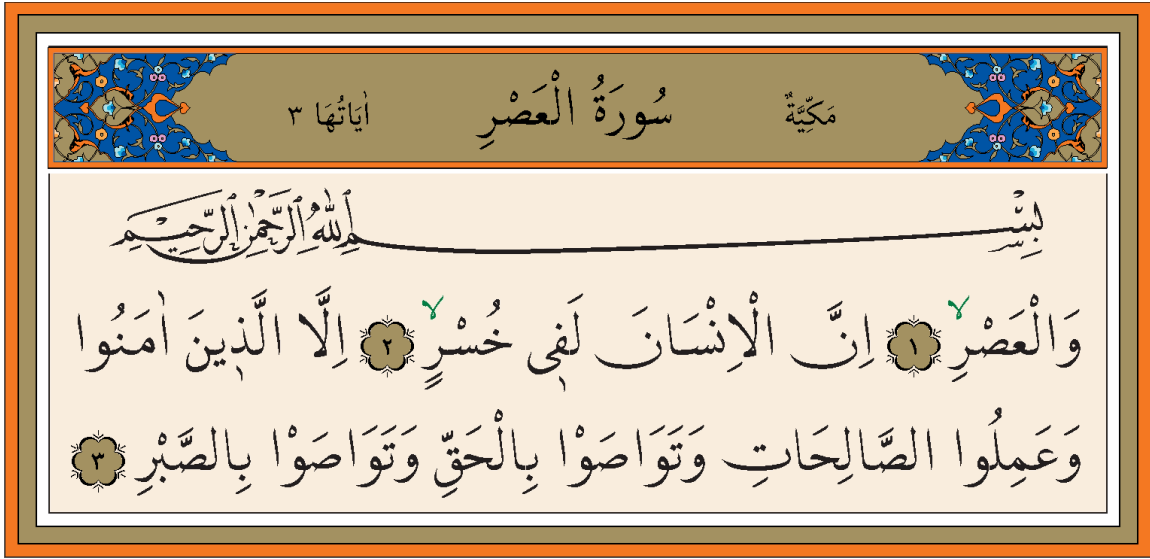 مَكِّيَّةٌ سُورَةُ الْعَصْرِ اٰيَاتُهَا ٣
بِسْمِ اللهِ الرَّحْمٰنِ الرَّحِيمِ
وَالْعَصْرِۙ ١ اِنَّ الْاِنْسَانَ لَفٖى خُسْرٍۙ ٢ اِلَّا الَّذٖينَ اٰمَنُوا
وَعَمِلُوا الصَّالِحَاتِ وَتَوَاصَوْا بِالْحَقِّ وَتَوَاصَوْا بِالصَّبْرِ ٣